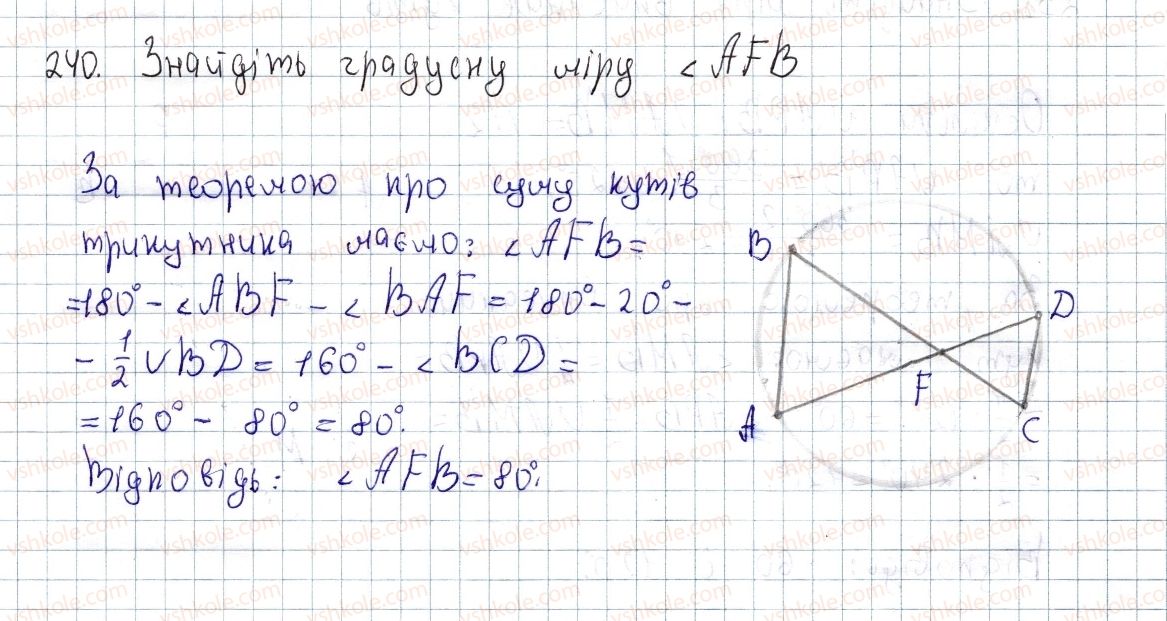 240. Знайдіть градусну міру ∠AFB
За теоремою про суму кутів
трикутника маємо: ∠AFB=
=180°-∠ABF-∠BAF=180°-20°-
-1/2 ∪BD=160°-∠BCD=
=160°-80°=80°.
Відповідь: ∠AFB=80°.
B
D
F
A
C
vshkole.com